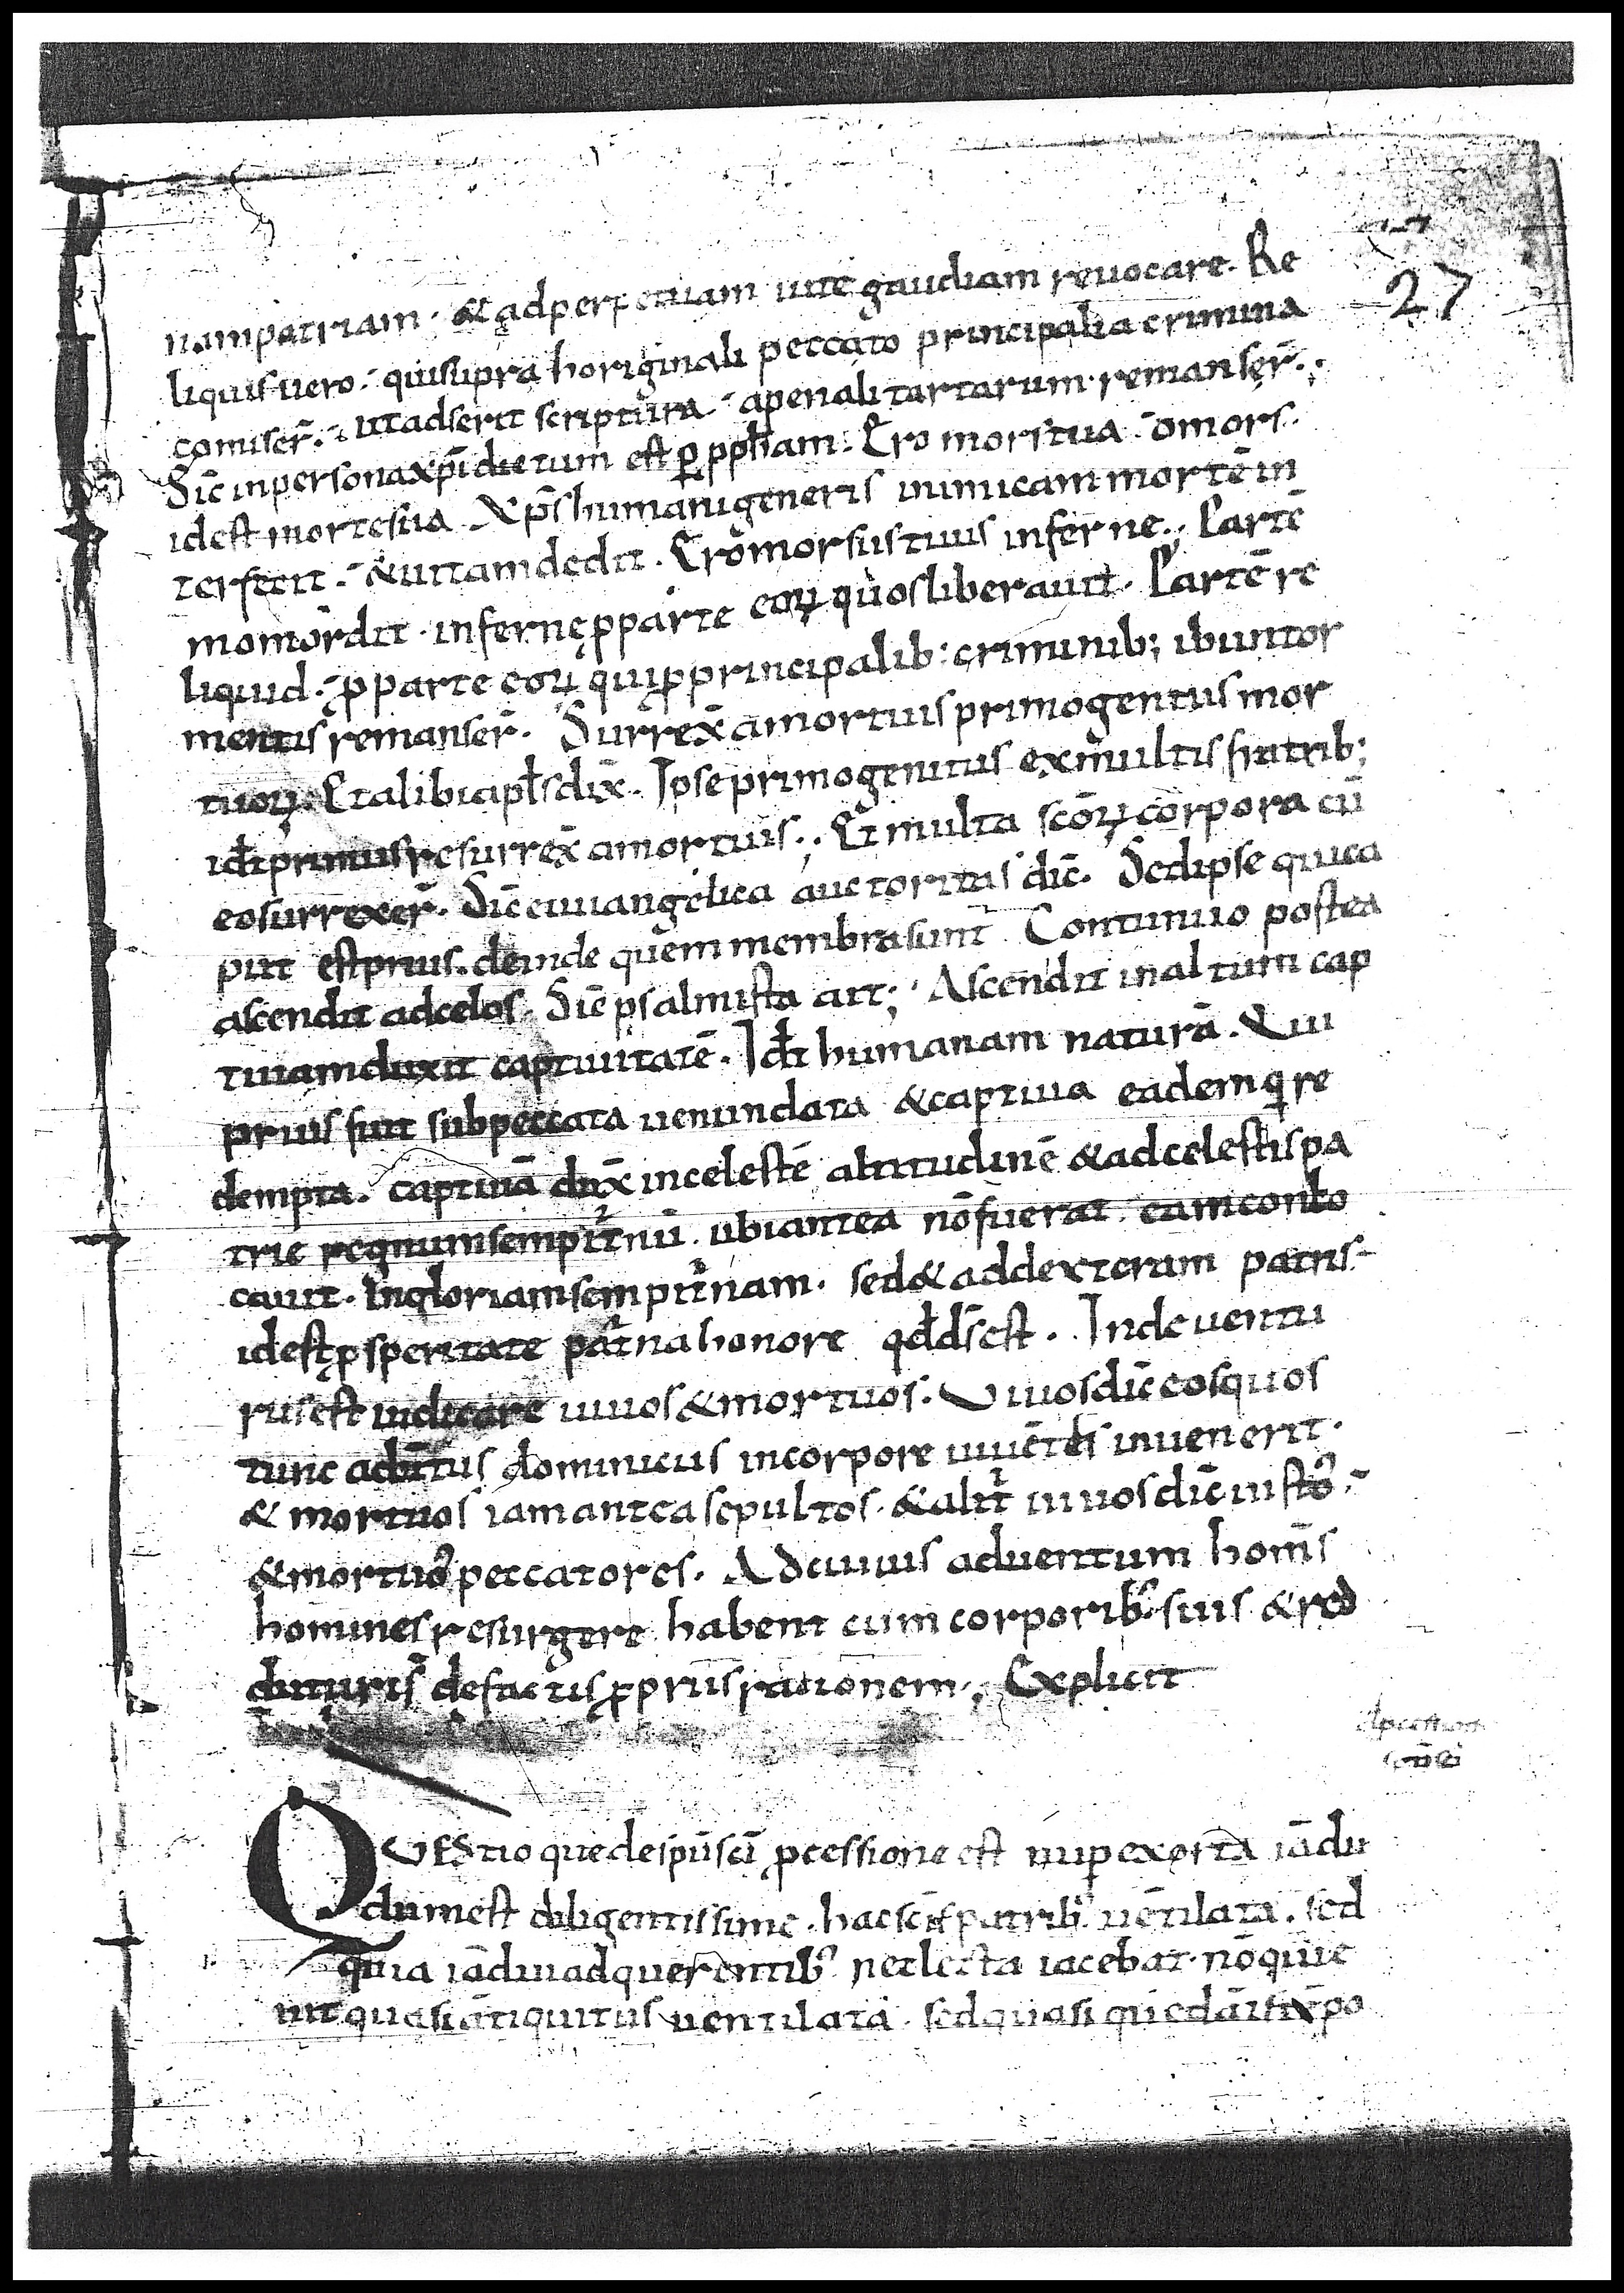 27
nam patriam. & ad perpetuam uite gaudiam reuocare. Re
liquis uero. qui supra horiginali peccato principalia crimina
comiser̄. ut adserit scriptura. a penali tartarum remanser̄.
Sic̄ in persona xp̄i dictum est ꝑ ꝓph̄am. Ero mors tua o mors.
id est morte sua. Xp̄s humani generis inimicam mortē in
terfecit. & uitam dedit. Ero morsus tuus inferne. Partē
momordit. infernę ꝓ parte eoꝝ quos liberauit. Partē re
liquid. ꝓ parte eoꝝ qui ꝓ principalib: criminib; ibi in tor
mentis remanser̄. Surrex̄ a mortuis primogenitus mor
tuoꝝ. Et alibi apl̄s dix̄. Ipse primogenitus ex multis fratrib;
id ē primus resurrex̄ a mortuis. Et multa sc̄oꝝ corpora cū
eo surrexer̄. Sic̄ euuangelica auctoritas dic̄. Sed ipse qui ca
put est prius. deinde quem membra sunt. Continuo postea
ascendit ad celos. Sic̄ psalmista ait; Ascendit in altum cap
tiuam duxit captiuitatē. Id ē humanam naturā. Qui
prius fuit sub peccata uenundata & captiua eademq; re
dempta. captiuā dux̄ in celestē altitudinē & ad celestis pa
trie regnum sempit̄nū. ubi antea nō fuerat. eam conlo
cauit. In gloriam sempit̄nam. sed & ad dexteram patris
id est ꝓsperitate pat̄na honore qd̄ d̄s est. Inde uentu
rus est iudicare uiuos & mortuos. Viuos dic̄ eos quos
tunc aduentus dominicus in corpore uiuētes inuenerit.
& mortuos iam antea sepultos. & alit̄ uiuos dic̄ iustos.
& mortuos peccatores. Ad cuius aduentum homīs
homines resurgere habent cum corporib; suis & red
dituri s̄ de factis ꝓpriis rationem. Explicit
QVEStio que de sp̄u sc̄i ꝓcessione est nuꝑ exorta iādu
dum est diligentissime. ha sc̄is patrib; uētilata. sed
quia iā diu ad querentib; neclecta iacebat. nō quie
uit quasi ātiquitus uentilata. sed quasi quedā